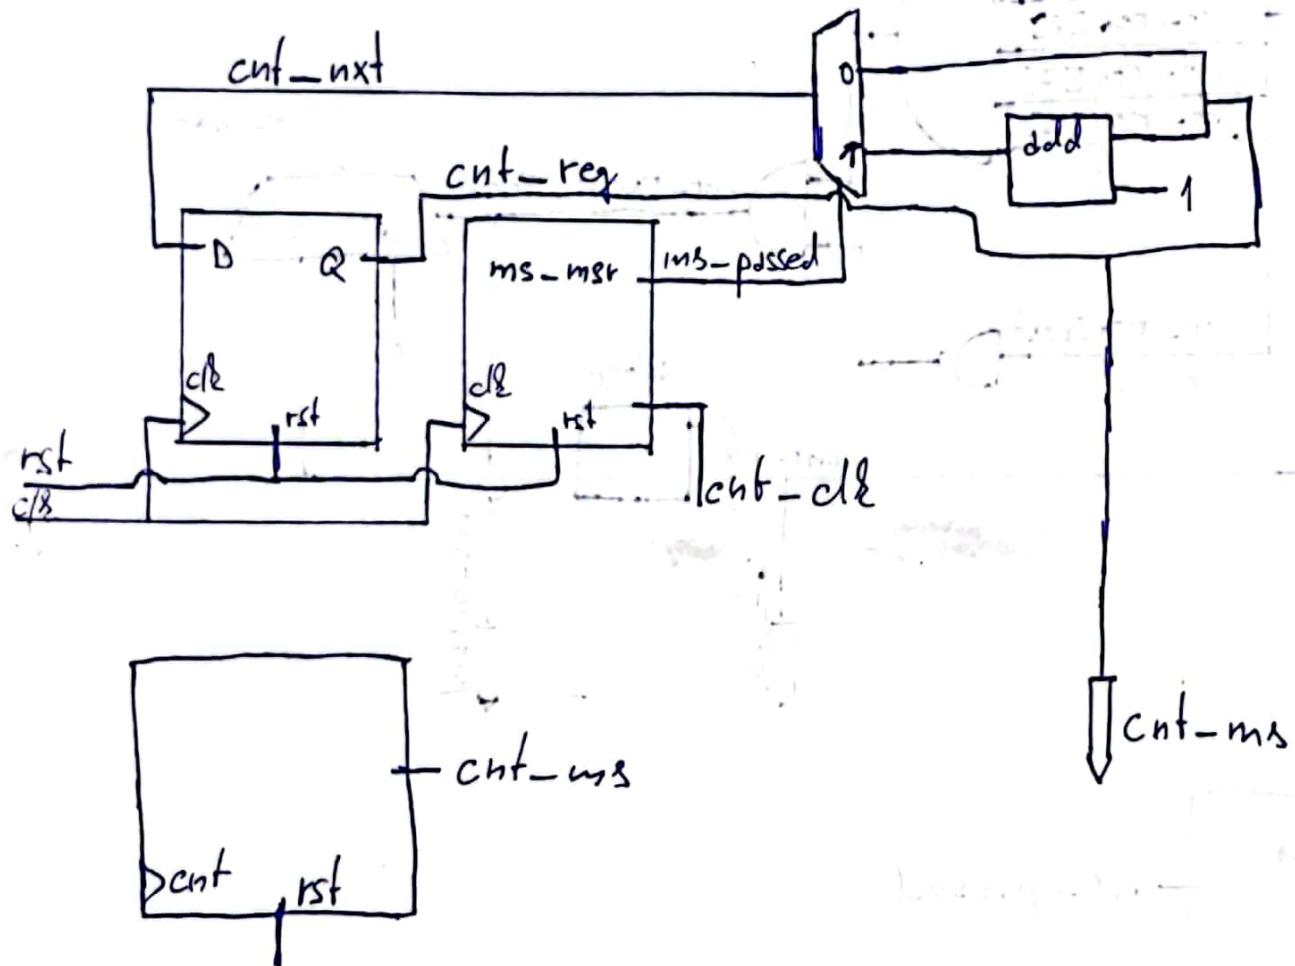 cnt_nxt
0
1
add
1
cnt_reg
D
Q
ms_msr
ms_passed
clk
rst
clk
rst
rst
clk
cnt_clk
cnt_ms
cnt_ms
cnt
rst